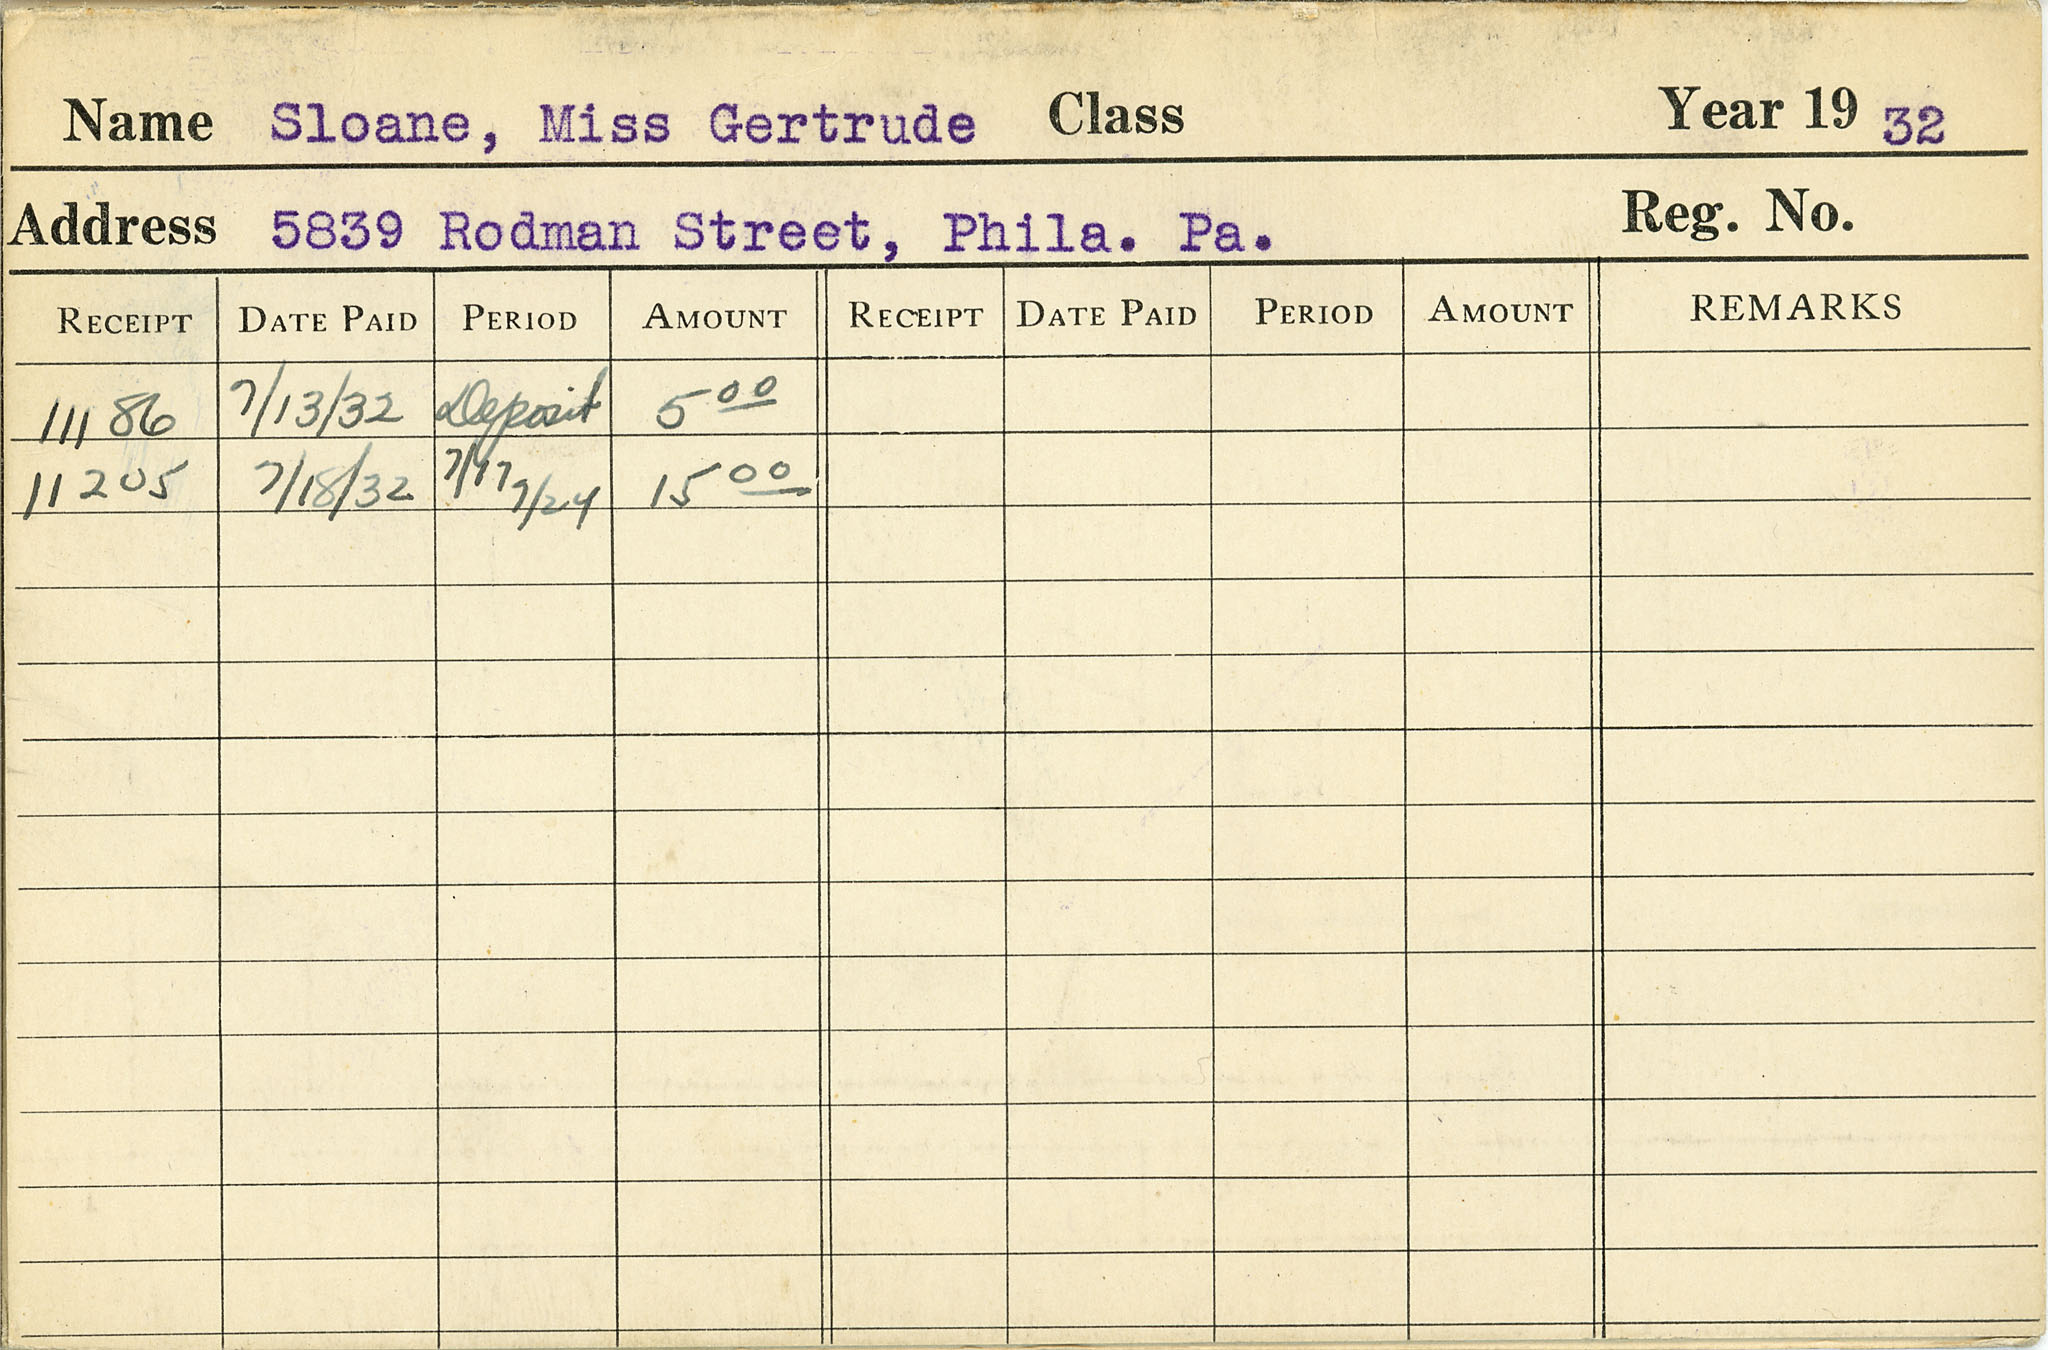 Name Sloane, Miss Gertrude Class Year 19 32
Address 5839 Rodman Street, Phila. Pa. Reg. No.
RECEIPT DATE PAID PERIOD AMOUNT RECEIPT DATE PAID PERIOD AMOUNT REMARKS
11186 7/13/32 Deposit 5 00
11205 7/18/32 7/17 7/24 15 00